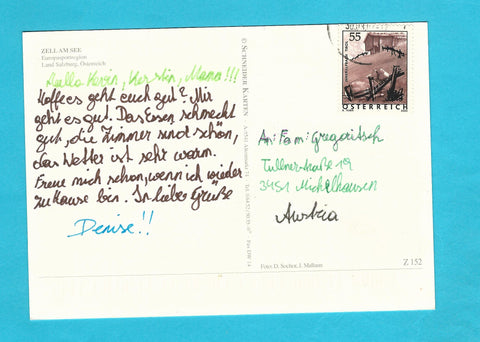 ZELL AM SEE
Europasportregion
Land Salzburg, Österreich
Hallo Kevin, Kerstin, Mama!!!
Hoffe es geht euch gut? Mir
geht es gut. Das Essen schmeckt
gut, die Zimmer sind schön,
das Wetter ist sehr warm.
Freue mich schon, wenn ich wieder
zuhause bin. In lieber Grüße
Denise!!
© SCHNEIDER KARTEN
55
ÖSTERREICH
An: Fam. Gregoritsch
Tullnerstraße 19
3451 Michelhausen
Austria
Foto: O. Sochor, J. Mallaun
Z 152